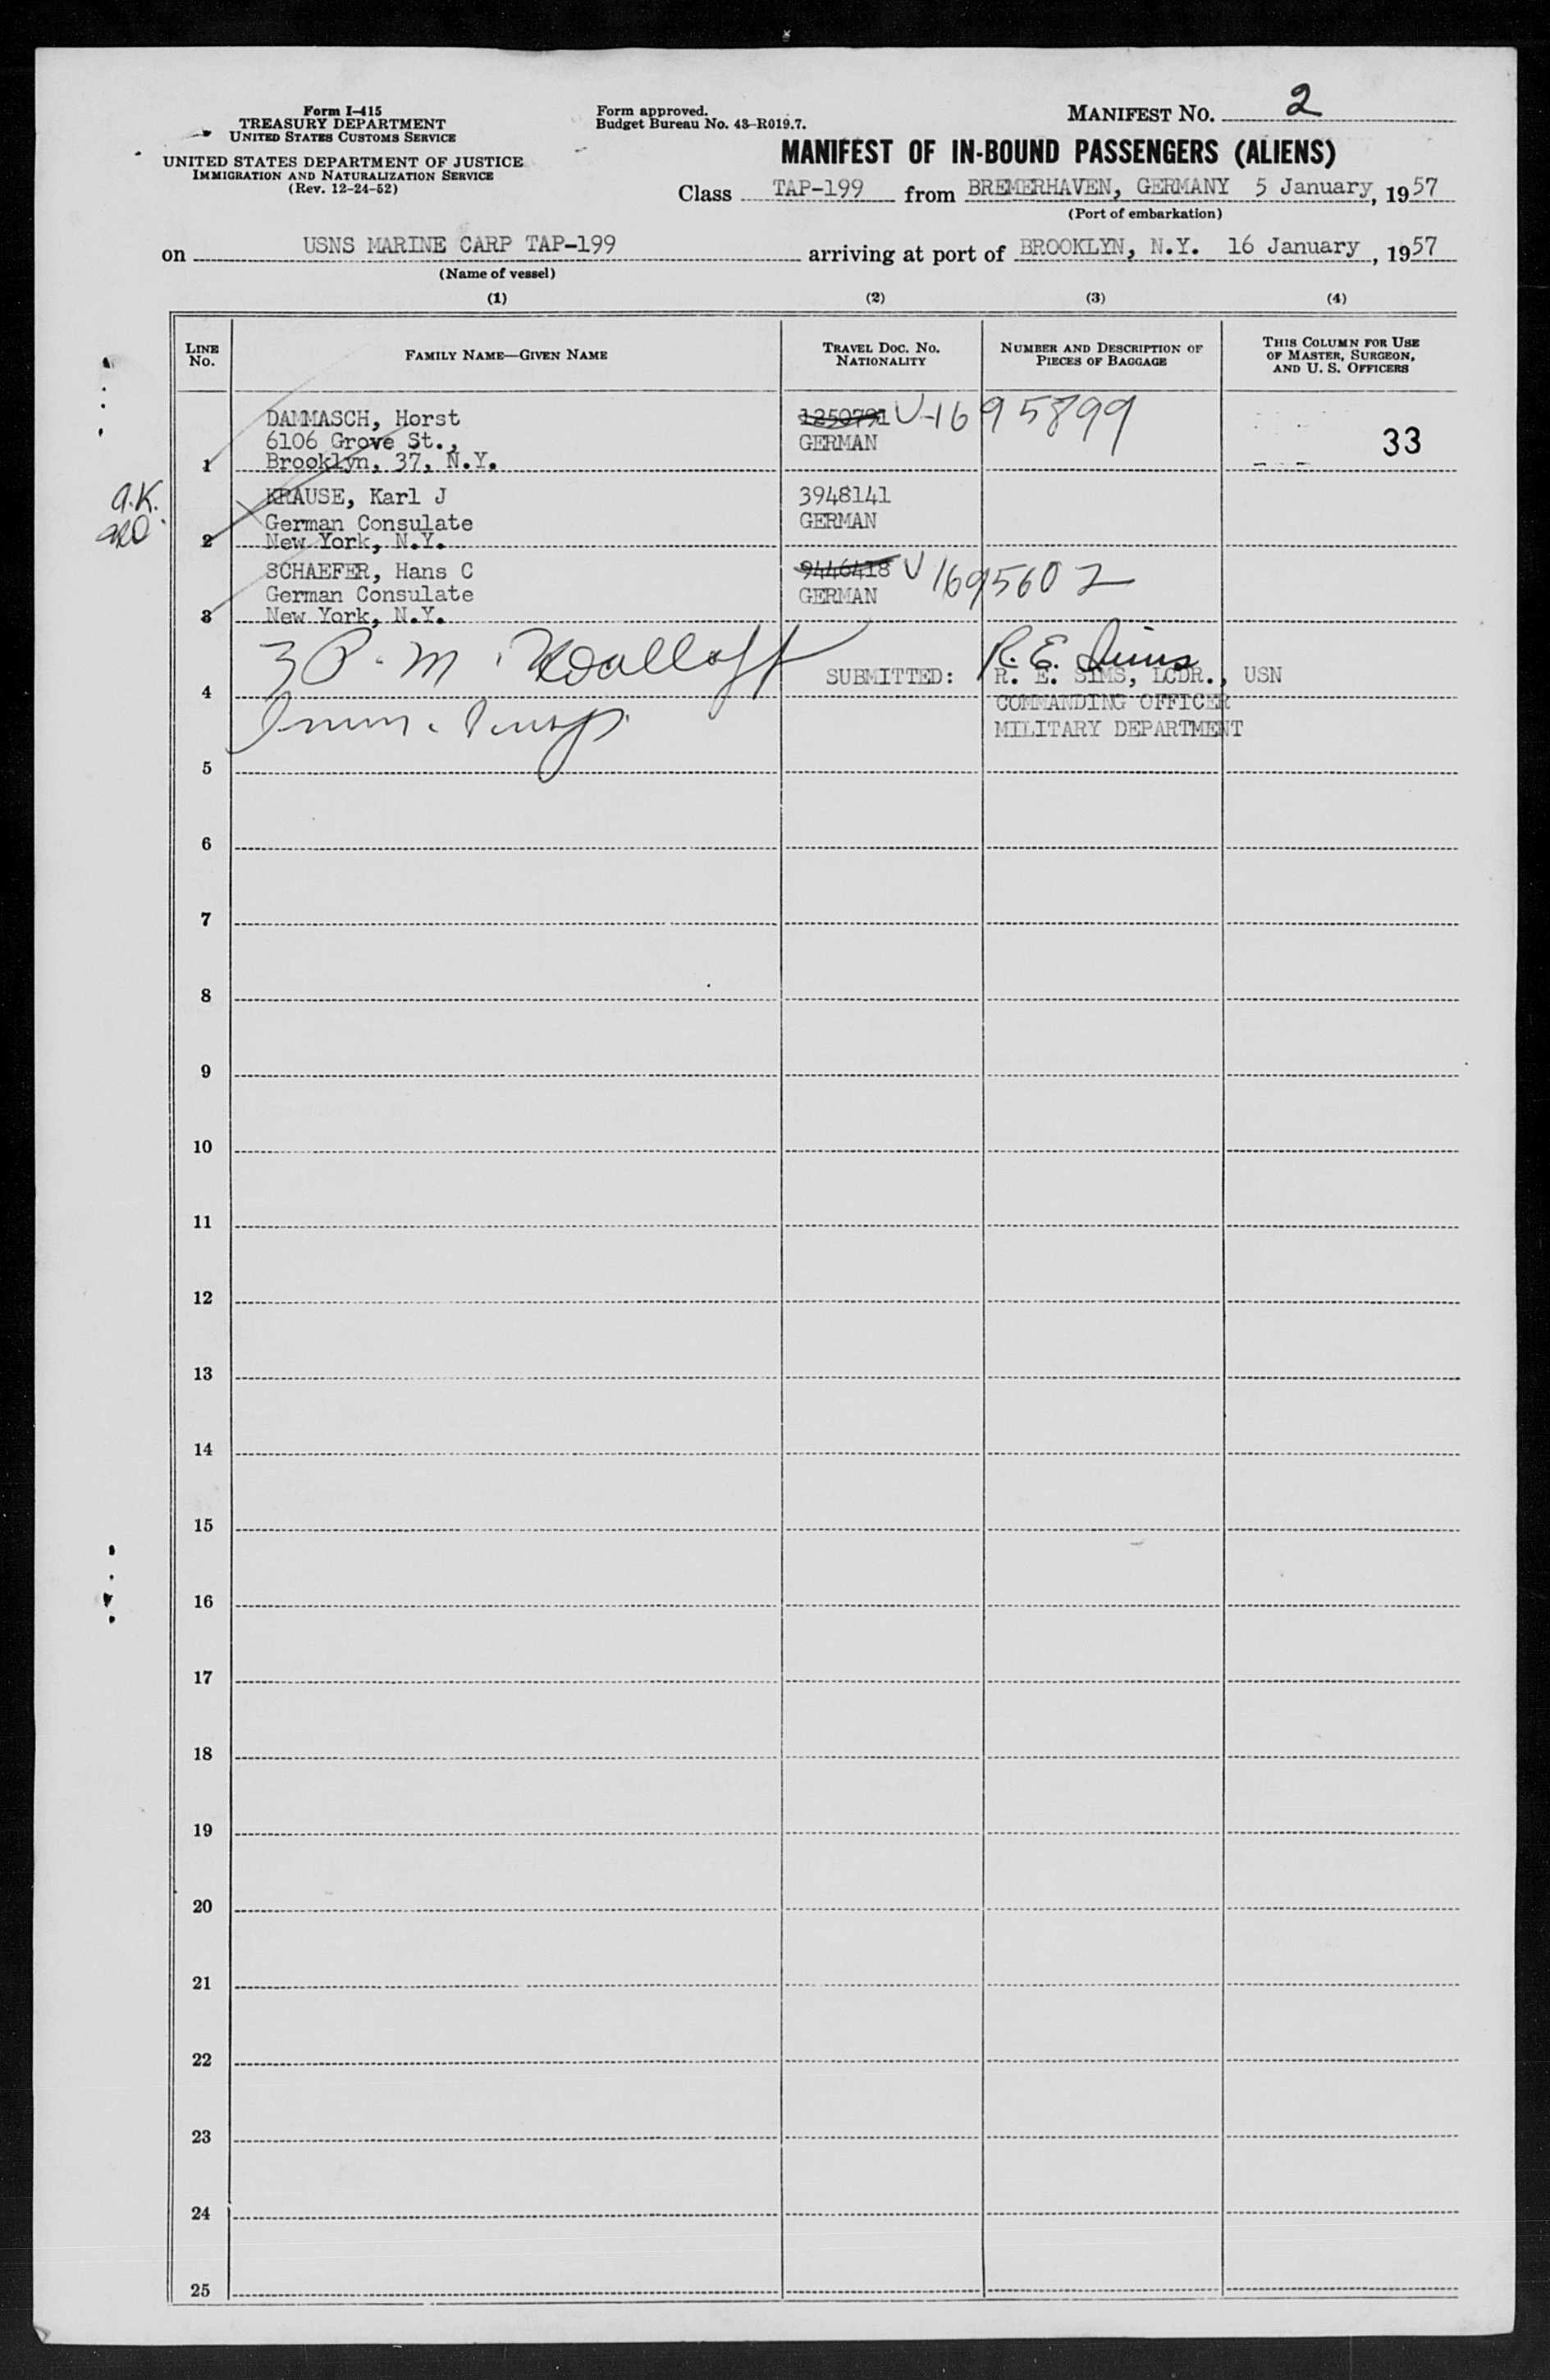 Form I-415
TREASURY DEPARTMENT
UNITED STATES CUSTOMS SERVICE
UNITED STATES DEPARTMENT OF JUSTICE
IMMIGRATION AND NATURALIZATION SERVICE
(Rev. 12-24-52)
Form approved.
Budget Bureau No. 43-R019.7.
MANIFEST NO. 2
MANIFEST OF IN-BOUND PASSENGERS (ALIENS)
Class TAP-199 from BREMERHAVEN, GERMANY 5 January, 1957
(Port of embarkation)
on USNS MARINE CARP TAP-199 arriving at port of BROOKLYN, N.Y. 16 January, 1957
(Name of vessel)
(1) (2) (3) (4)
LINE NO.
FAMILY NAME—GIVEN NAME
TRAVEL DOC. NO.
NATIONALITY
NUMBER AND DESCRIPTION OF
PIECES OF BAGGAGE
THIS COLUMN FOR USE
OF MASTER, SURGEON,
AND U. S. OFFICERS
DAMMASCH, Horst 1250791 V-1695899
6106 Grove St., GERMAN 33
1 Brooklyn, 37, N.Y.
a.K. KRAUSE, Karl J 3948141
German Consulate GERMAN
2 New York, N.Y.
SCHAEFER, Hans C 9446418 V 1695602
German Consulate GERMAN
3 New York, N.Y.
3 P. M. R. E. Sims
4 SUBMITTED: R. E. SIMS, LCDR., USN
COMMANDING OFFICER
MILITARY DEPARTMENT
5
6
7
8
9
10
11
12
13
14
15
16
17
18
19
20
21
22
23
24
25